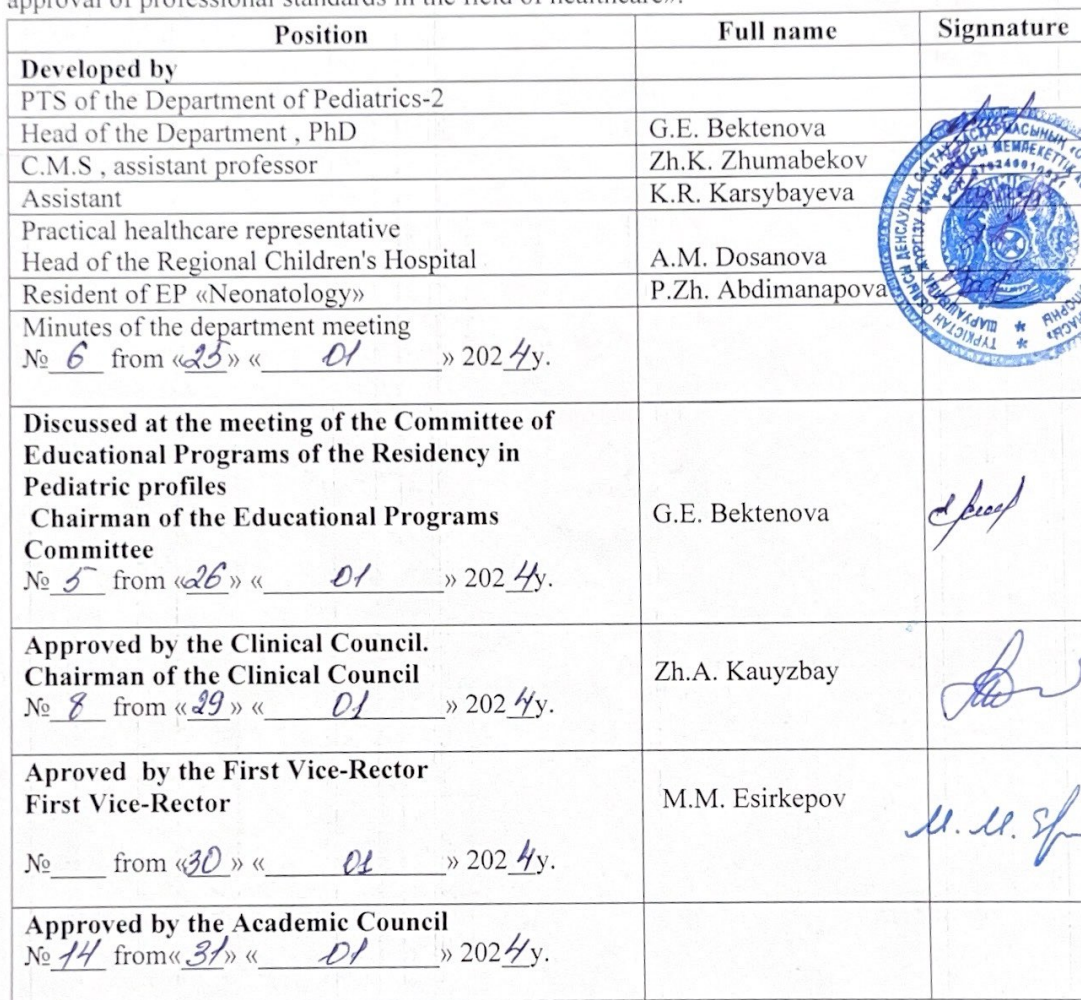 approval of professional standards in the field of healthcare».
Position Full name Signnature
Developed by
PTS of the Department of Pediatrics-2
Head of the Department , PhD G.E. Bektenova
C.M.S , assistant professor Zh.K. Zhumabekov
Assistant K.R. Karsybayeva
Practical healthcare representative
Head of the Regional Children's Hospital A.M. Dosanova
Resident of EP «Neonatology» P.Zh. Abdimanapova
Minutes of the department meeting
№ 6 from «25» « 01 » 2024y.
Discussed at the meeting of the Committee of
Educational Programs of the Residency in
Pediatric profiles
Chairman of the Educational Programs
Committee
G.E. Bektenova
№ 5 from «26» « 01 » 2024y.
Approved by the Clinical Council.
Chairman of the Clinical Council
Zh.A. Kauyzbay
№ 8 from «29» « 01 » 2024y.
Aproved by the First Vice-Rector
First Vice-Rector
M.M. Esirkepov
№ from «30» « 01 » 2024y.
M. M.
Approved by the Academic Council
№ 14 from«31» « 01 » 2024y.